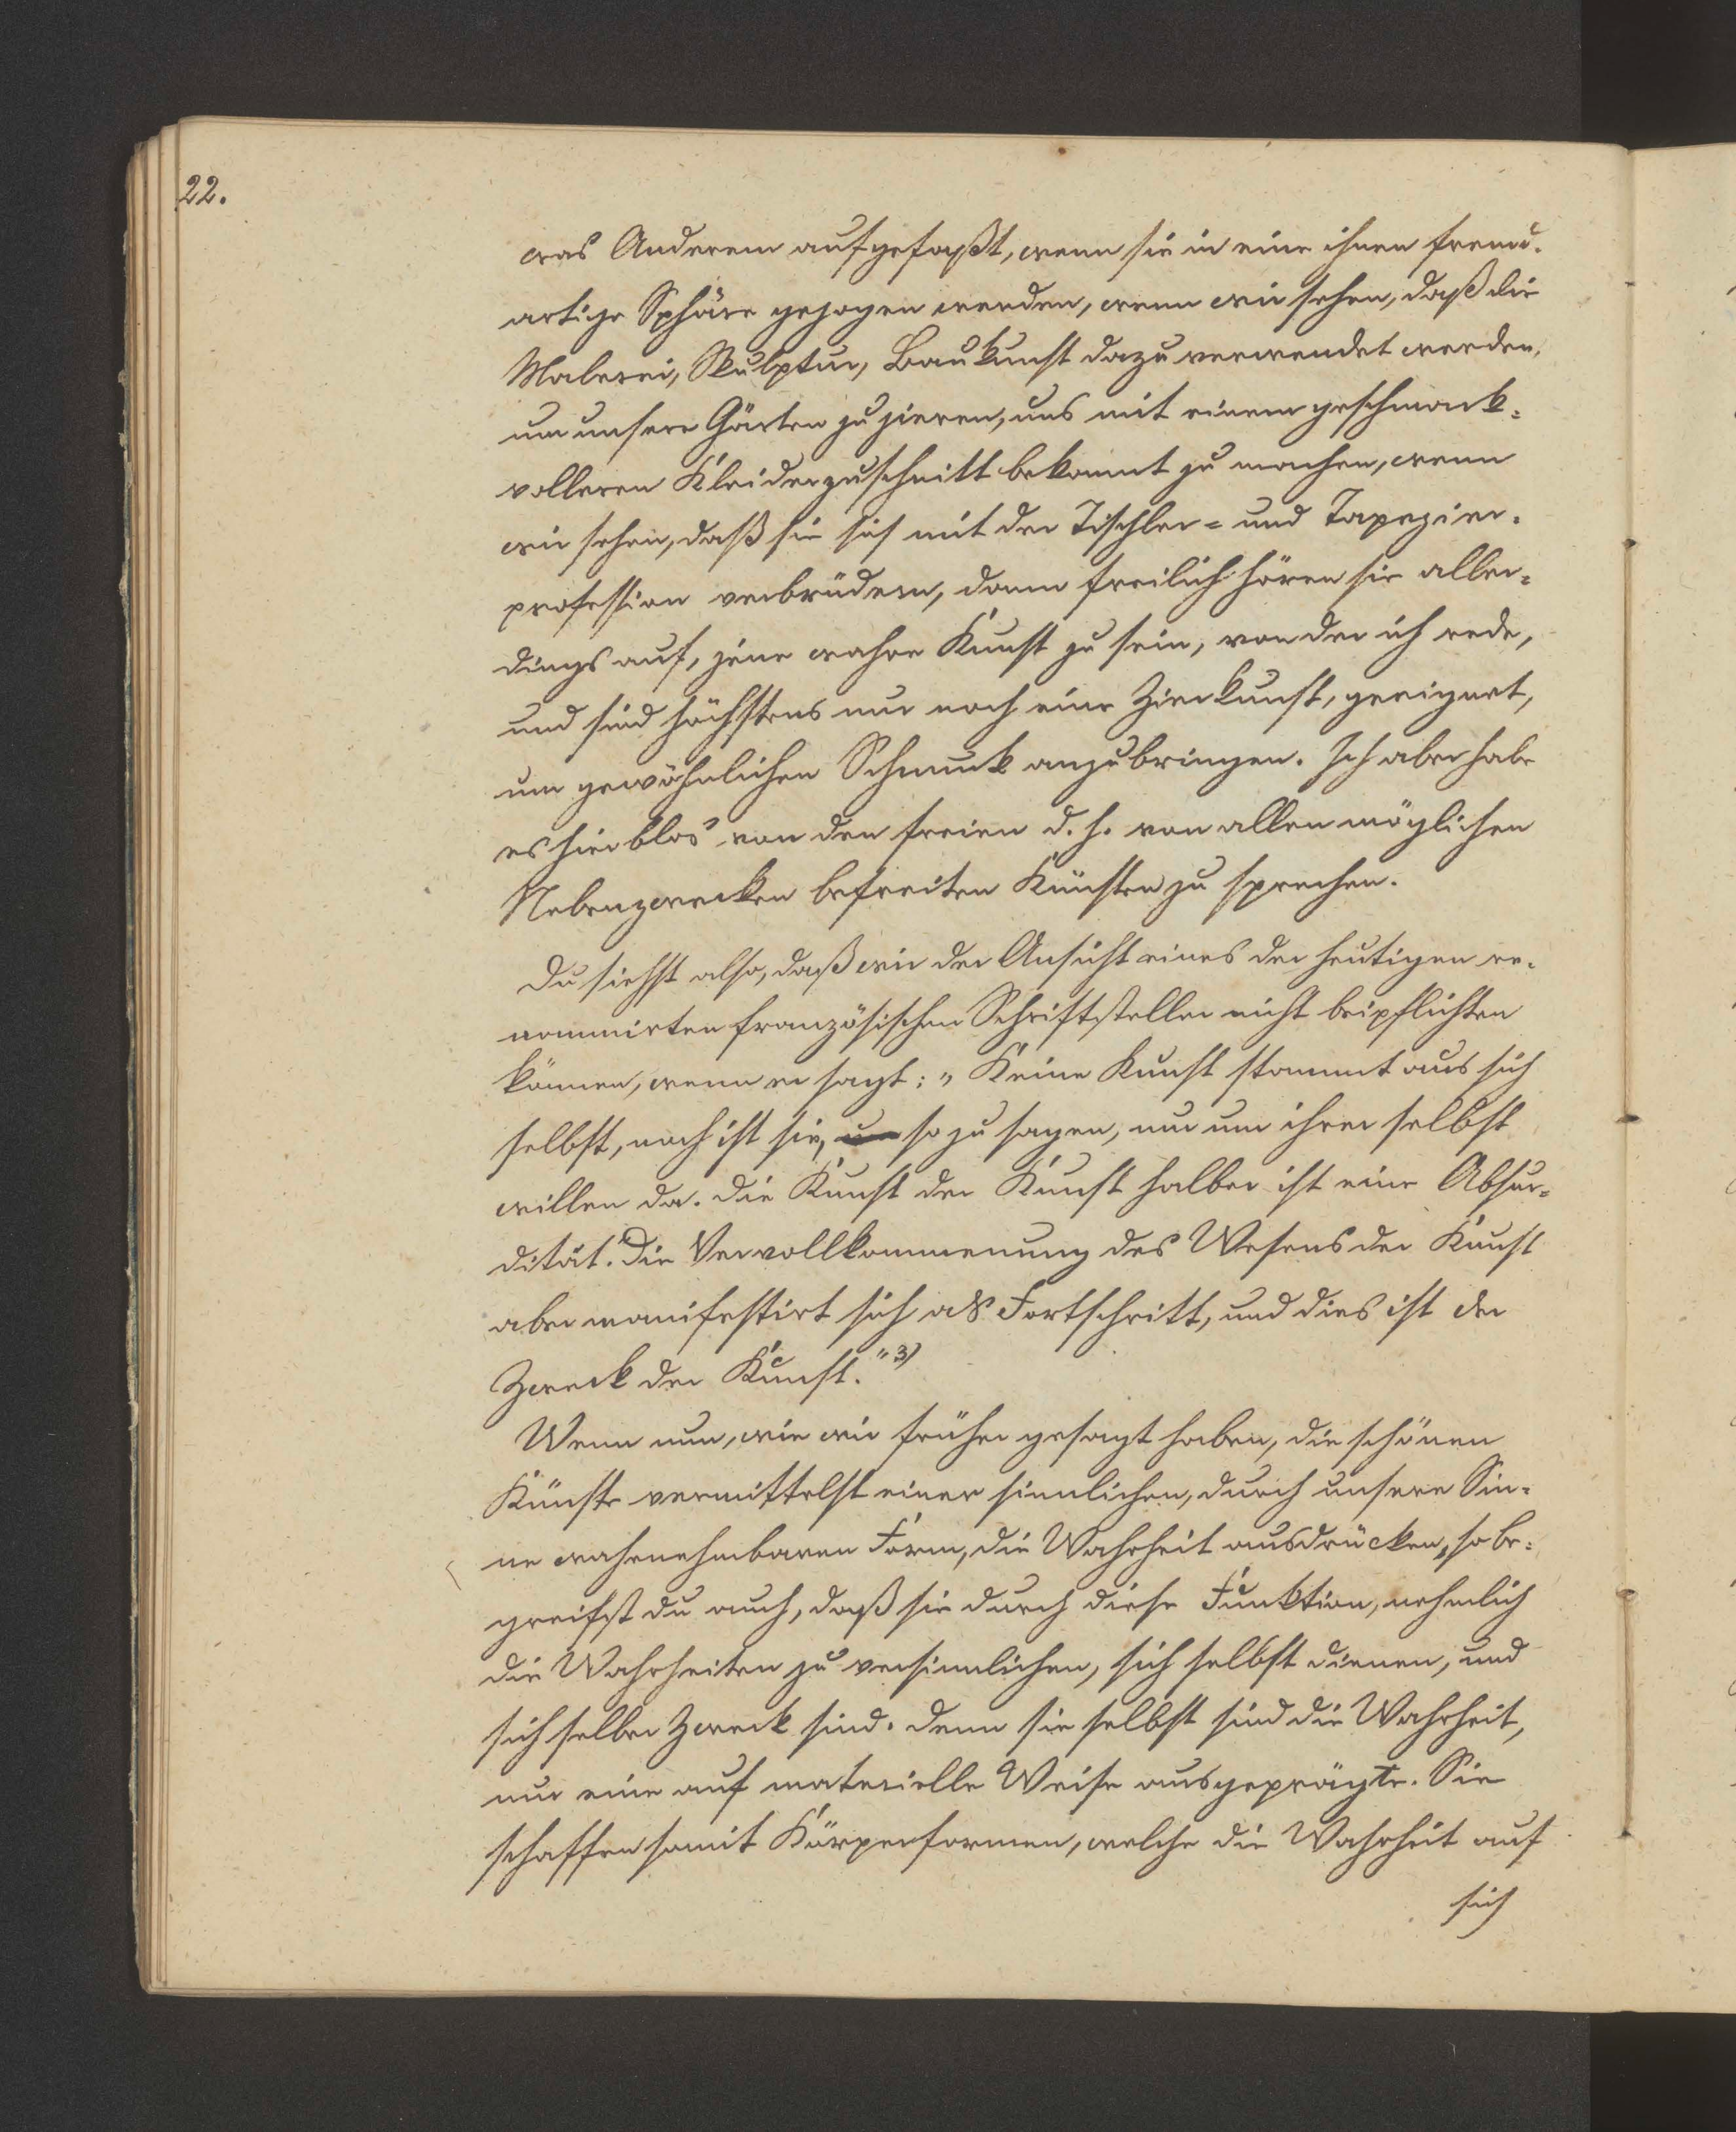 22.
was Anderem aufgefaßt, wenn sie in eine ihnen fremd-
artige Sphäre gezogen werden, wenn wir sehen, daß die
Malerei, Skulptur, Baukunst dazu verwendet werden,
um unsere Gärten zu zieren, uns mit einem geschmack-
volleren Kleiderzuschnitt bekannt zu machen, wenn
wir sehen, daß sie sich mit der Tischler- und Tapezier-
profession verbrüdern, dann freilich hören sie aller-
dings auf, jene wahre Kunst zu sein, von der ich rede,
und sind höchstens nur noch eine Zierkunst, geeignet,
um gewöhnlichen Schmuck anzubringen. Ich aber habe
es hier blos von den freien d. h. von allen möglichen
Nebenzwecken befreiten Künsten zu sprechen.
Du siehst also, daß wir der Ansicht eines der heutigen re-
nommirten französischen Schriftsteller nicht beipflichten
können, wenn er sagt: „Keine Kunst stammt aus sich
selbst, noch ist sie, so zu sagen, nur um ihrer selbst
willen da. Die Kunst der Kunst halber ist eine Absur-
dität. Die Vervollkommenung des Wesens der Kunst
aber manifestirt sich als Fortschritt, und dies ist der
Zweck der Kunst." 3)
Wenn nun, wie wir früher gesagt haben, die schönen
Künste vermittelst einer sinnlichen, durch unsere Sin-
ne wahrnehmbaren Form, die Wahrheit ausdrücken, so be-
greifst du auch, daß sie durch diese Funktion, nehmlich
die Wahrheiten zu versinnlichen, sich selbst dienen, und
sich selber Zweck sind. Denn sie selbst sind die Wahrheit,
nur eine auf materielle Weise ausgeprägte. Sie
schaffen somit Körperformen, welche die Wahrheit auf
sich